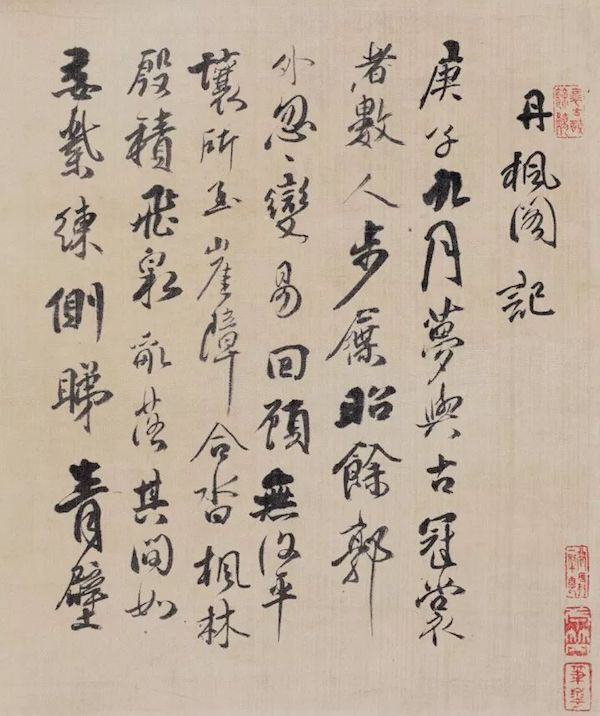 丹楓閣記
庚子九月夢與古冠裳
者數人步屧昭餘郭
外忽々變易回顧無復平
壤所至崖障合沓楓林
殷積飛泉亂落其間如
委縈練側睇青壁